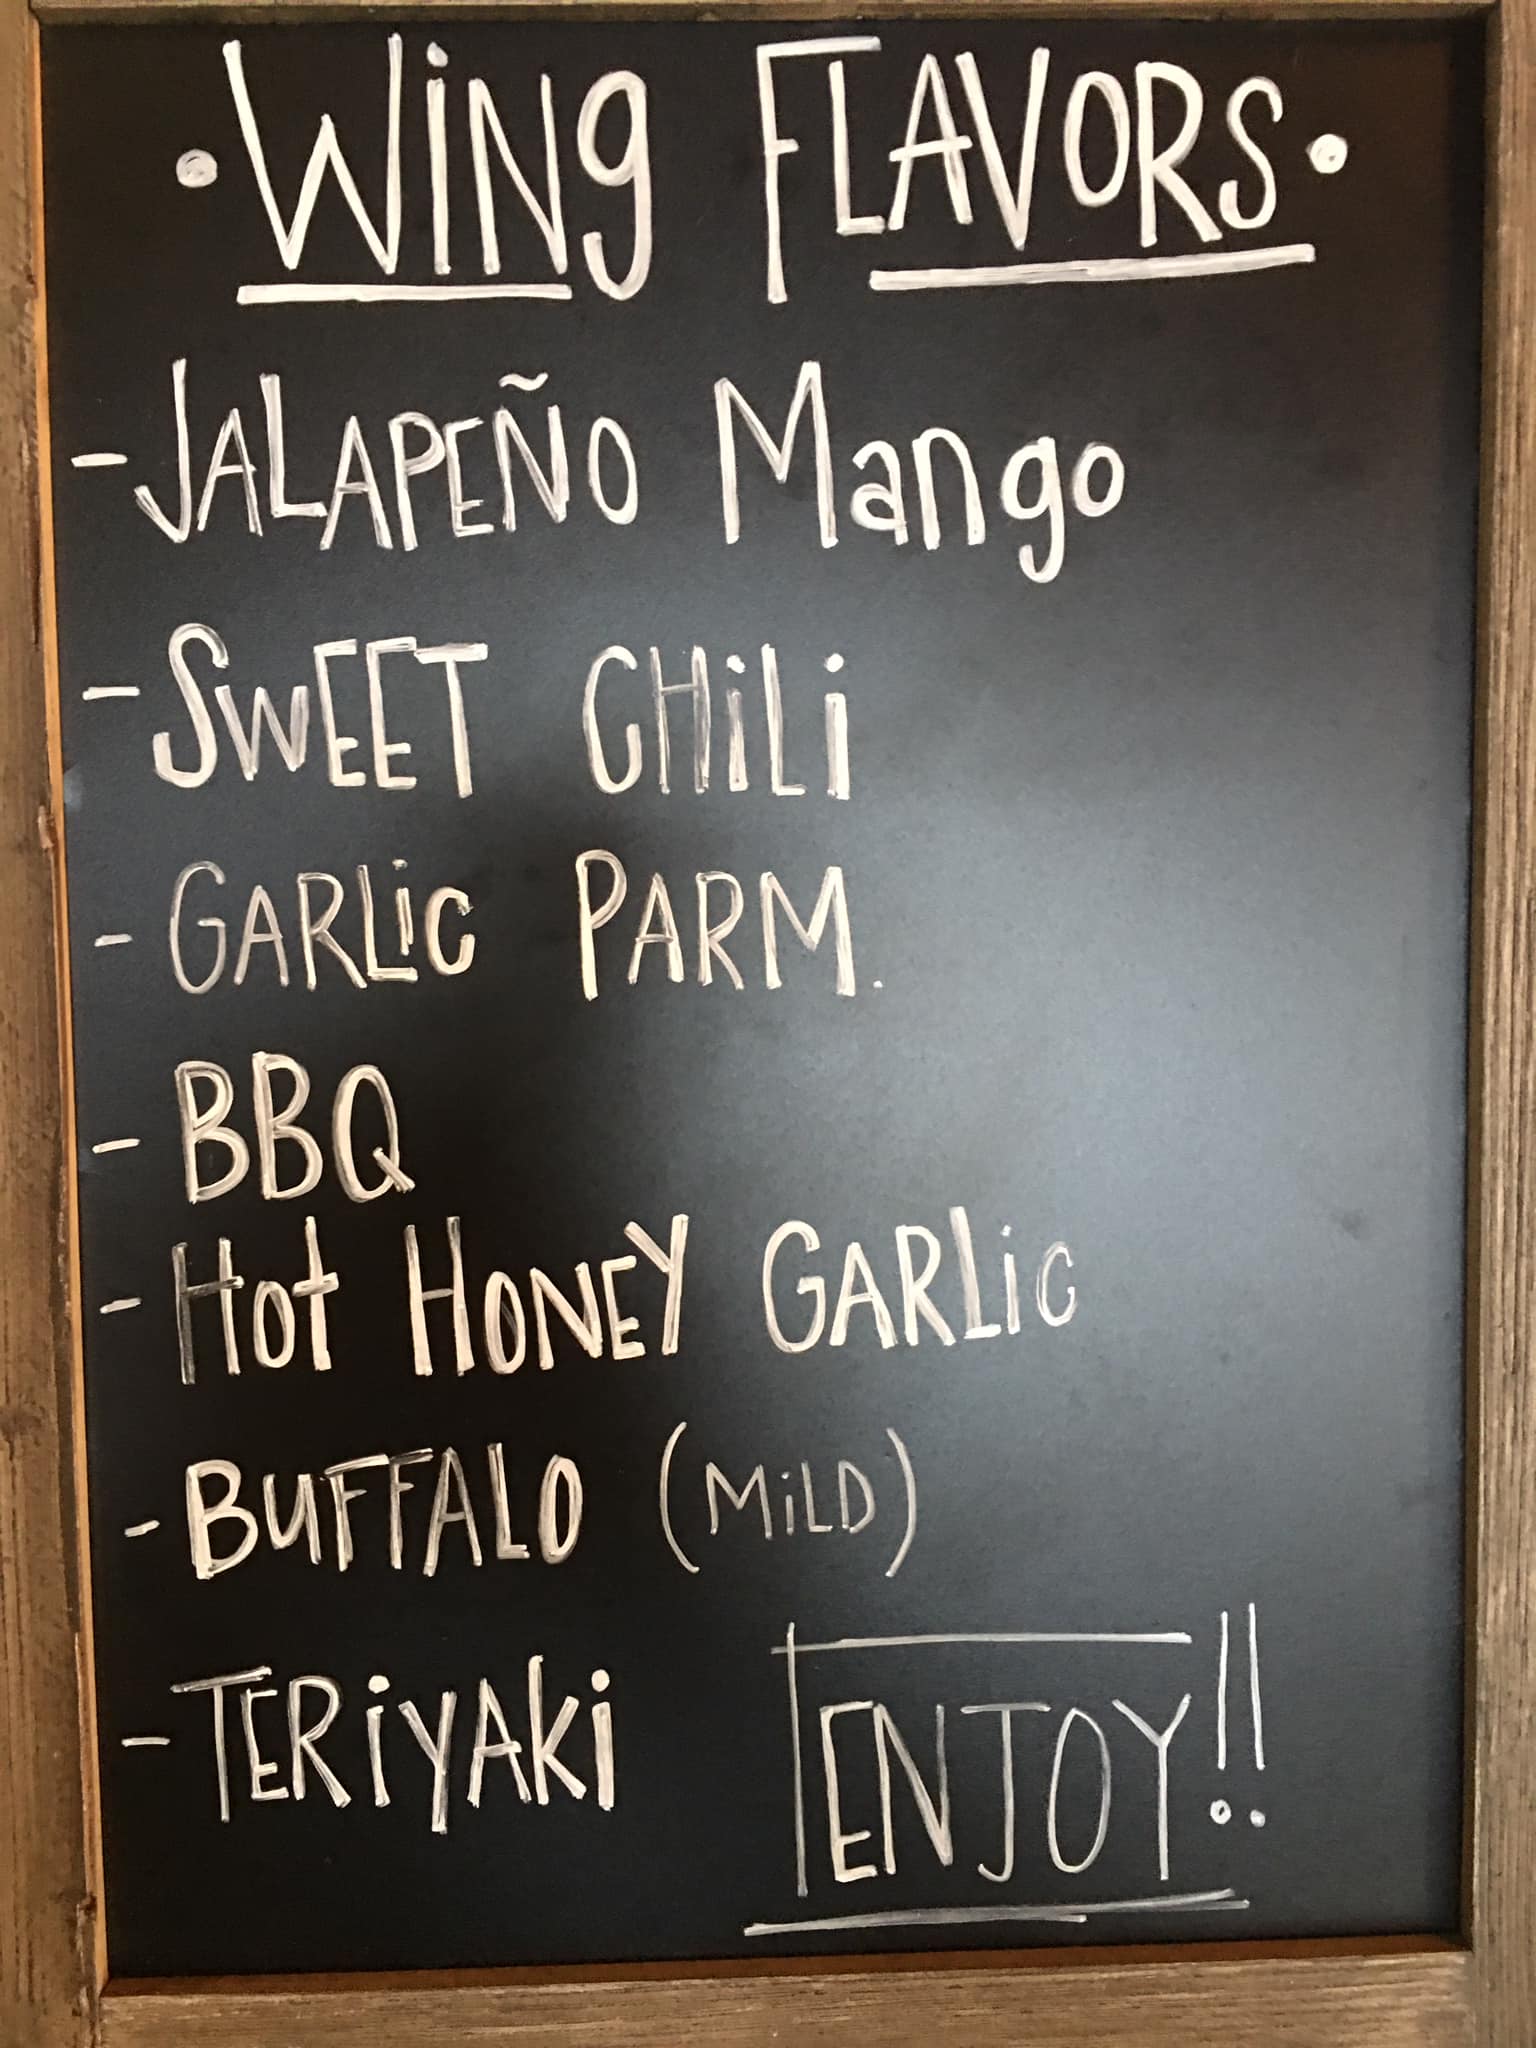 • WiNg FLAVORS •
- JALAPEÑO Mango
- SWEET CHiLi
- GARLic PARM.
- BBQ
- Hot HONEY GARLic
- BUFFALO (MiLD)
- TERiYAki
ENJOY!!